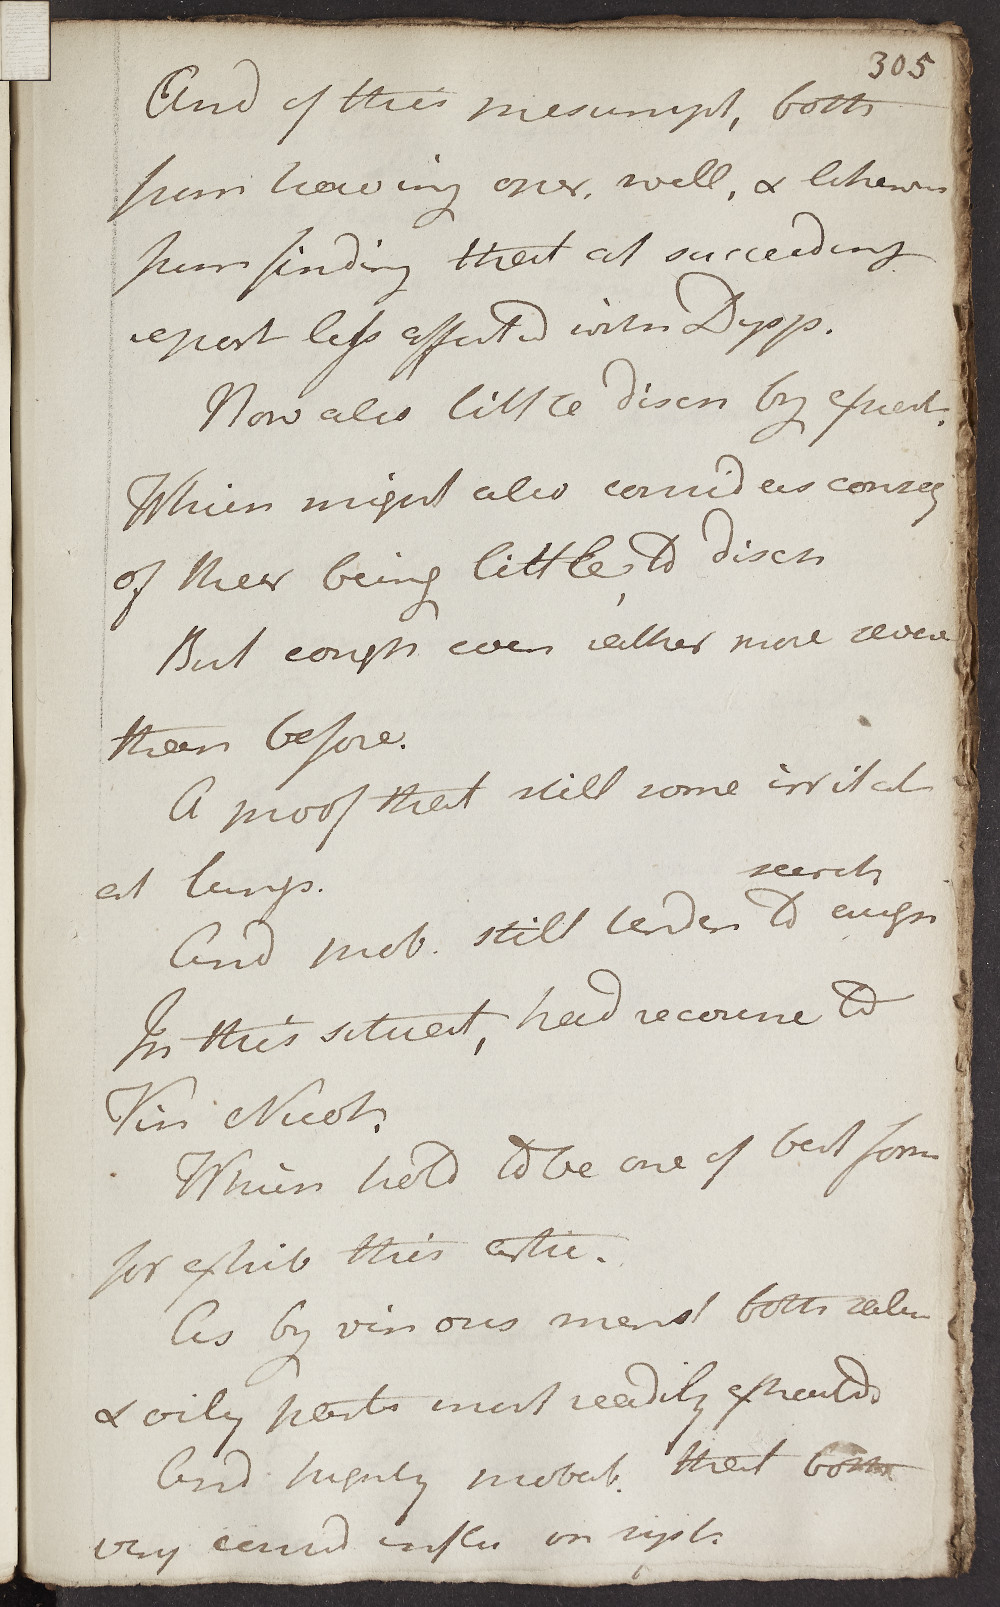 305
And of this presumpt, both
from having oper. well, & likewis
from finding that at succeeding
report less affected with Dysp.
Now also little disch by expect.
Which might also consid as conseq
of their being little to disch
But cough even rather more severe
than before.
A proof that still some irritat
at lungs.
search
And prob. still tenden to augm
In this situat, had recourse to
Vin Nicot.
Which hold to be one of best form
for exhib this artic.
As by vinous menst both salin
& oily parts most readily extracted
And highly probab. that both
very consid influ on syst.